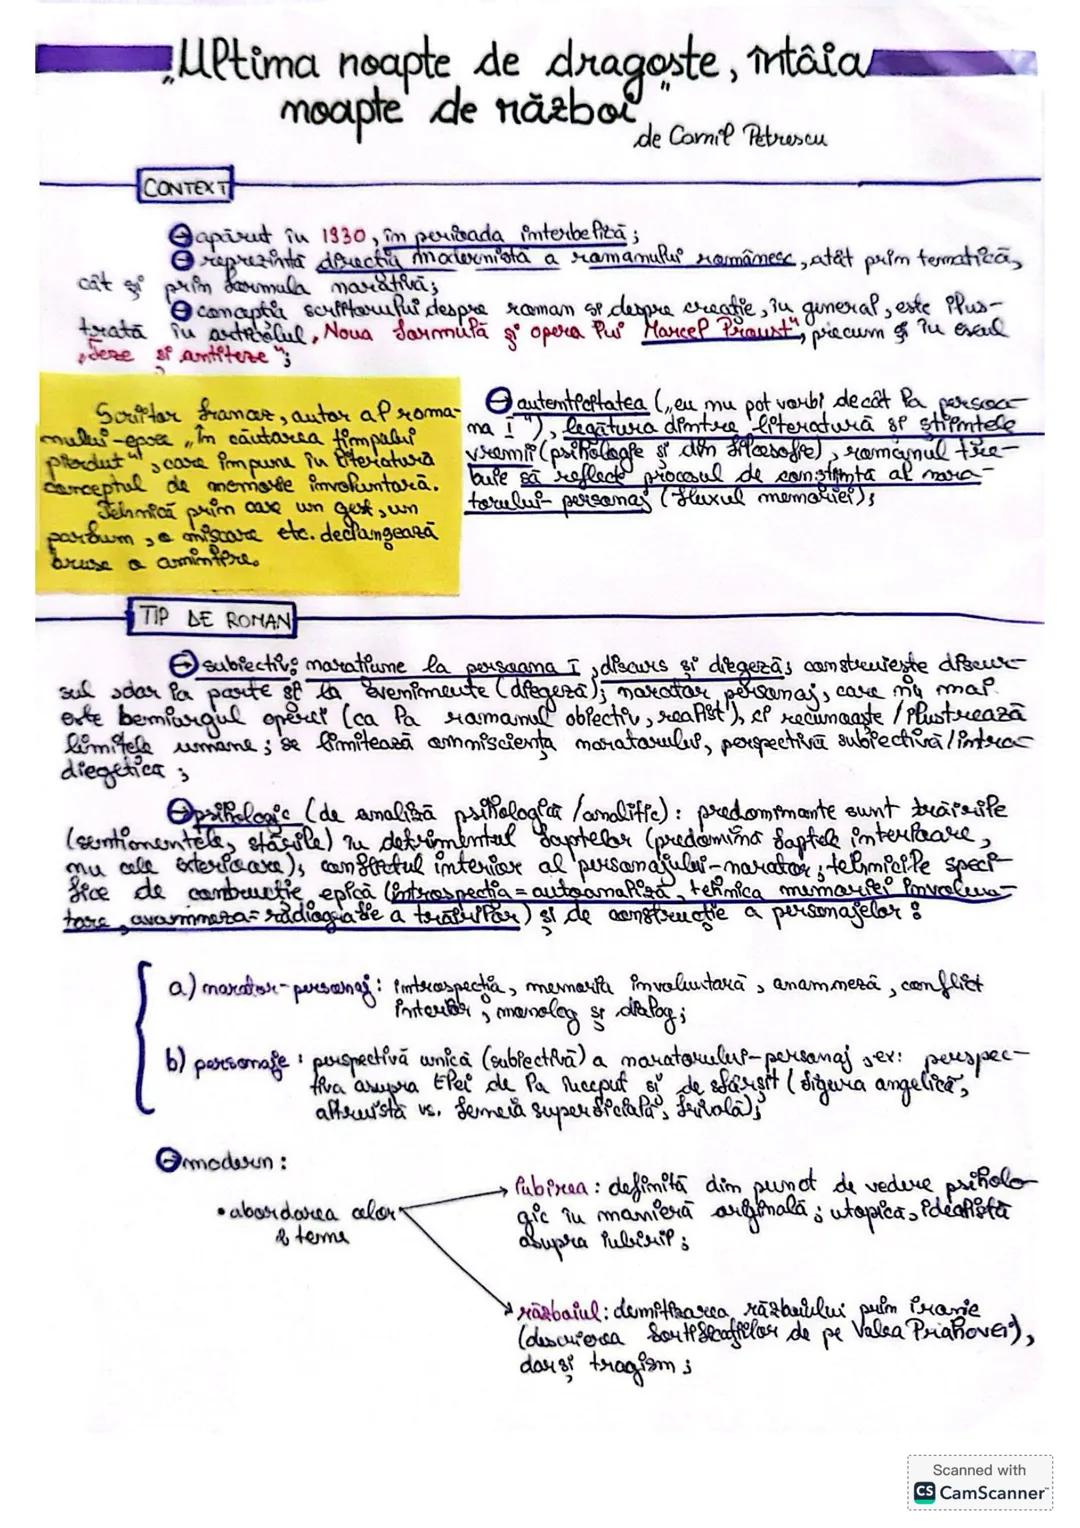 „Ultima noapte de dragoste, întâia
noapte de război"
de Camil Petrescu
CONTEXT
apărut în 1930, în perioada interbelică;
reprezintă direcția modernistă a romanului românesc, atât prin tematică,
cât și prin formula narativă;
concepția scriitorului despre roman și despre creație, în general, este ilus-
trată în articolul „Noua formulă și opera lui Marcel Proust", precum și în eseul
„Teze și antiteze";
Scriitor francez, autor al roma-
nului-epocă „În căutarea timpului
pierdut", care impune în literatură
conceptul de memorie involuntară.
Tehnică prin care un gest, un
parfum, o mișcare etc. declanșează
brusc o amintire.
autenticitatea („eu nu pot vorbi decât la persoa-
na I"), legătura dintre literatură și științele
vremii (psihologie și din filosofie), romanul tre-
buie să reflecte procesul de conștiință al nara-
torului-personaj (fluxul memoriei);
TIP DE ROMAN
subiectiv: narațiune la persoana I, discurs și diegeză; construiește discur-
sul, dar ia parte și la evenimente (diegeză); narator personaj, care nu mai
este demiurgul operei (ca la romanul obiectiv, realist), ci recunoaște / ilustrează
limitele umane; se limitează omnisciența naratorului, perspectivă subiectivă/intra-
diegetică;
psihologic (de analiză psihologică /analitic): predominante sunt trăirile
(sentimentele, stările) în detrimentul faptelor (predomină faptele interioare,
nu cele exterioare); conflictul interior al personajului-narator; tehnicile speci-
fice de construcție epică (introspecția = autoanaliză, tehnica memoriei involun-
tare, anamneza= radiografie a trăirilor) și de construcție a personajelor:
a) narator-personaj: introspecția, memoria involuntară, anamneză, conflict
interior, monolog și dialog;
b) personaje: perspectivă unică (subiectivă) a naratorului-personaj, ex: perspec-
tiva asupra Elei de la început și de sfârșit (figura angelică,
altruistă vs. femeia superficială, frivolă);
modern:
• abordarea celor
2 teme
iubirea: definită din punct de vedere psiholo-
gic în manieră originală; utopică, idealistă
asupra iubirii;
războiul: demitizarea războiului prin ironie
(descrierea fortificațiilor de pe Valea Prahovei),
dar și tragism;
Scanned with
CS CamScanner